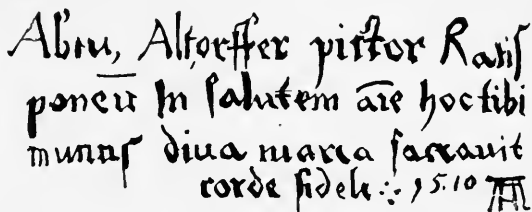 Albtu, Altorffer pictor Ratis
ponēn̄ In salutem aīe hoc tibi
munus diua maria sacrauit
corde fideli ∴ 1510